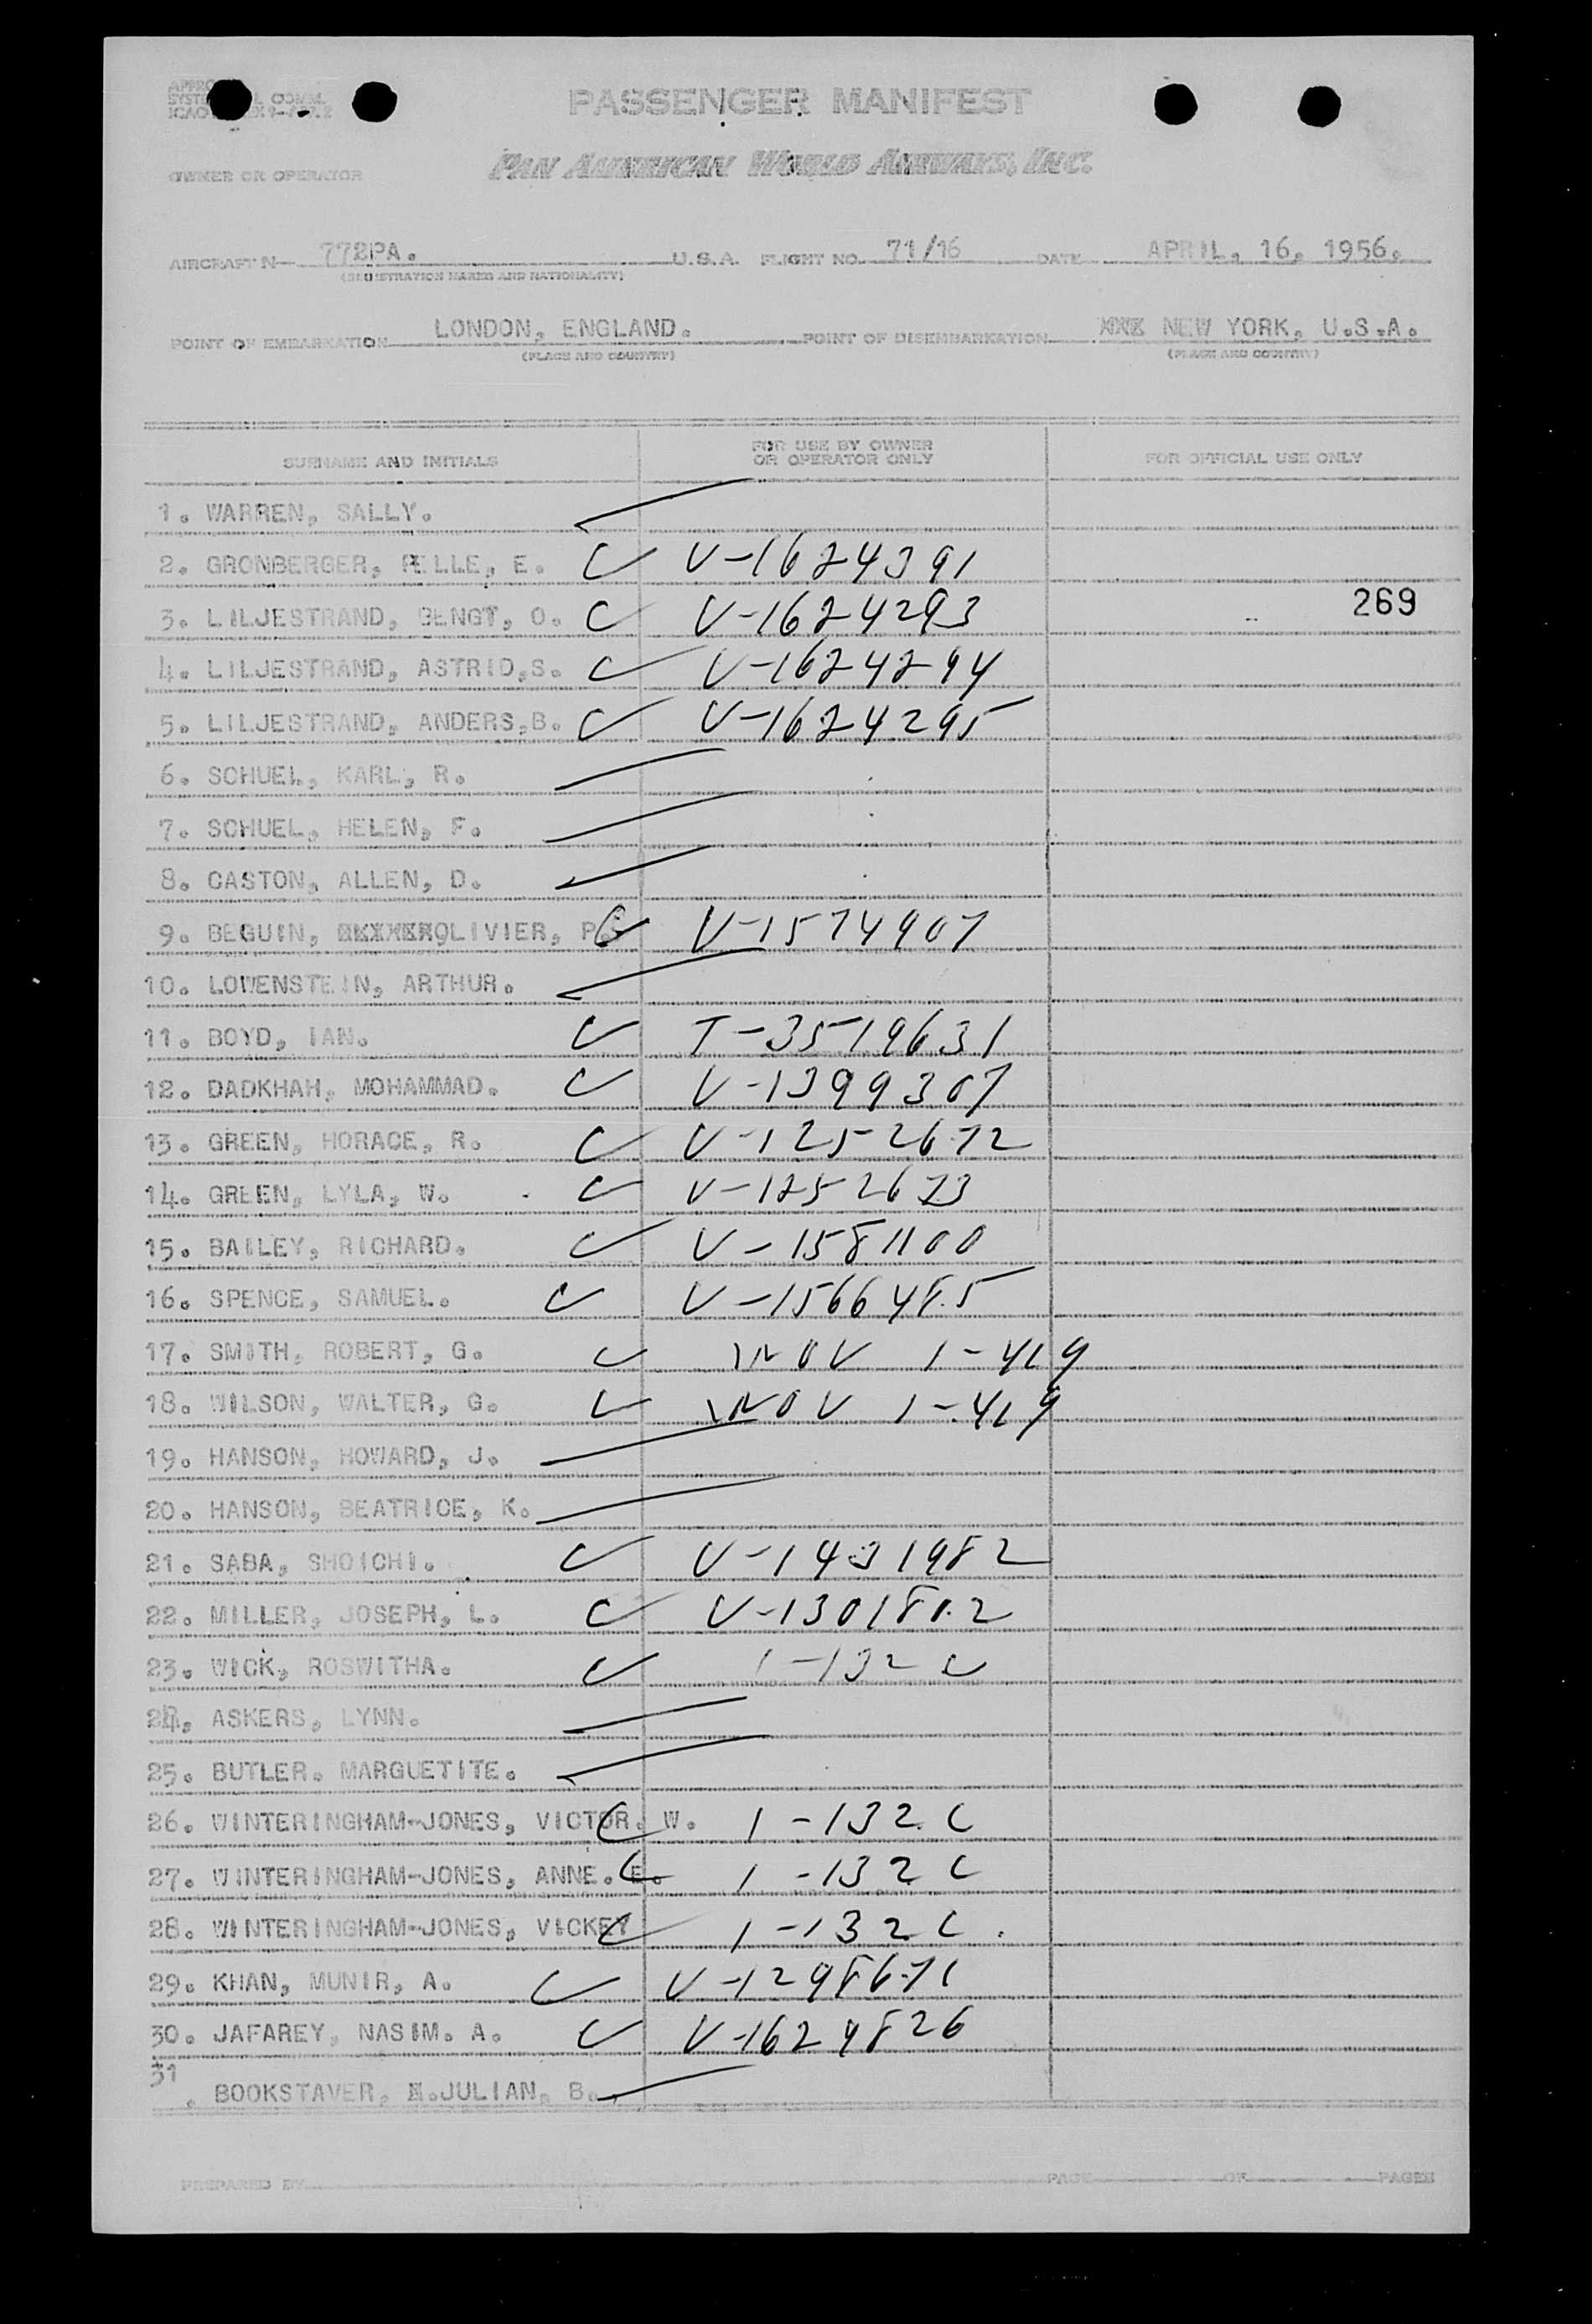 PASSENGER MANIFEST
PAN AMERICAN WORLD AIRWAYS, INC.
OWNER OR OPERATOR
AIRCRAFT N 772PA. U.S.A. FLIGHT NO. 71/16 DATE APRIL, 16, 1956.
(REGISTRATION MARKS AND NATIONALITY)
POINT OF EMBARKATION LONDON, ENGLAND. POINT OF DISEMBARKATION XXX NEW YORK, U.S.A.
(PLACE AND COUNTRY) (PLACE AND COUNTRY)
SURNAME AND INITIALS FOR USE BY OWNER OR OPERATOR ONLY FOR OFFICIAL USE ONLY
1. WARREN, SALLY.
2. GRONBERGER, PELLE, E. V-1624391
3. LILJESTRAND, BENGT, O. V-1624293 269
4. LILJESTRAND, ASTRID,S. V-1624294
5. LILJESTRAND, ANDERS,B. V-1624295
6. SCHUEL, KARL, R.
7. SCHUEL, HELEN, F.
8. CASTON, ALLEN, D.
9. BEGUIN, OLIVIER, P. V-1574907
10. LOWENSTEIN, ARTHUR.
11. BOYD, IAN. T-3519631
12. DADKHAH, MOHAMMAD. V-1399307
13. GREEN, HORACE, R. V-1252672
14. GREEN, LYLA, W. V-1252673
15. BAILEY, RICHARD. V-1581100
16. SPENCE, SAMUEL. V-1566485
17. SMITH, ROBERT, G. WOV 1-419
18. WILSON, WALTER, G. WOV 1-419
19. HANSON, HOWARD, J.
20. HANSON, BEATRICE, K.
21. SABA, SHOICHI. V-1431982
22. MILLER, JOSEPH, L. V-1301802
23. WICK, ROSWITHA. 1-132 C
24. ASKERS, LYNN.
25. BUTLER. MARGUETITE.
26. WINTERINGHAM-JONES, VICTOR. W. 1-132 C
27. WINTERINGHAM-JONES, ANNE. E. 1-132 C
28. WINTERINGHAM-JONES, VICKEY 1-132 C.
29. KHAN, MUNIR, A. V-1298671
30. JAFAREY, NASIM. A. V-1624826
31. BOOKSTAVER, JULIAN, B.
PREPARED BY PAGE OF PAGES